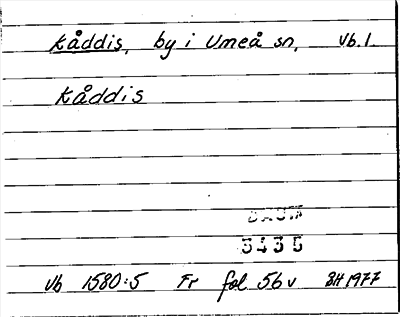 Kåddis, by i Umeå sn, Vb. l.
Kåddis
DAUM
5435
Vb 1580:5 Fr fol 56v BH 1977